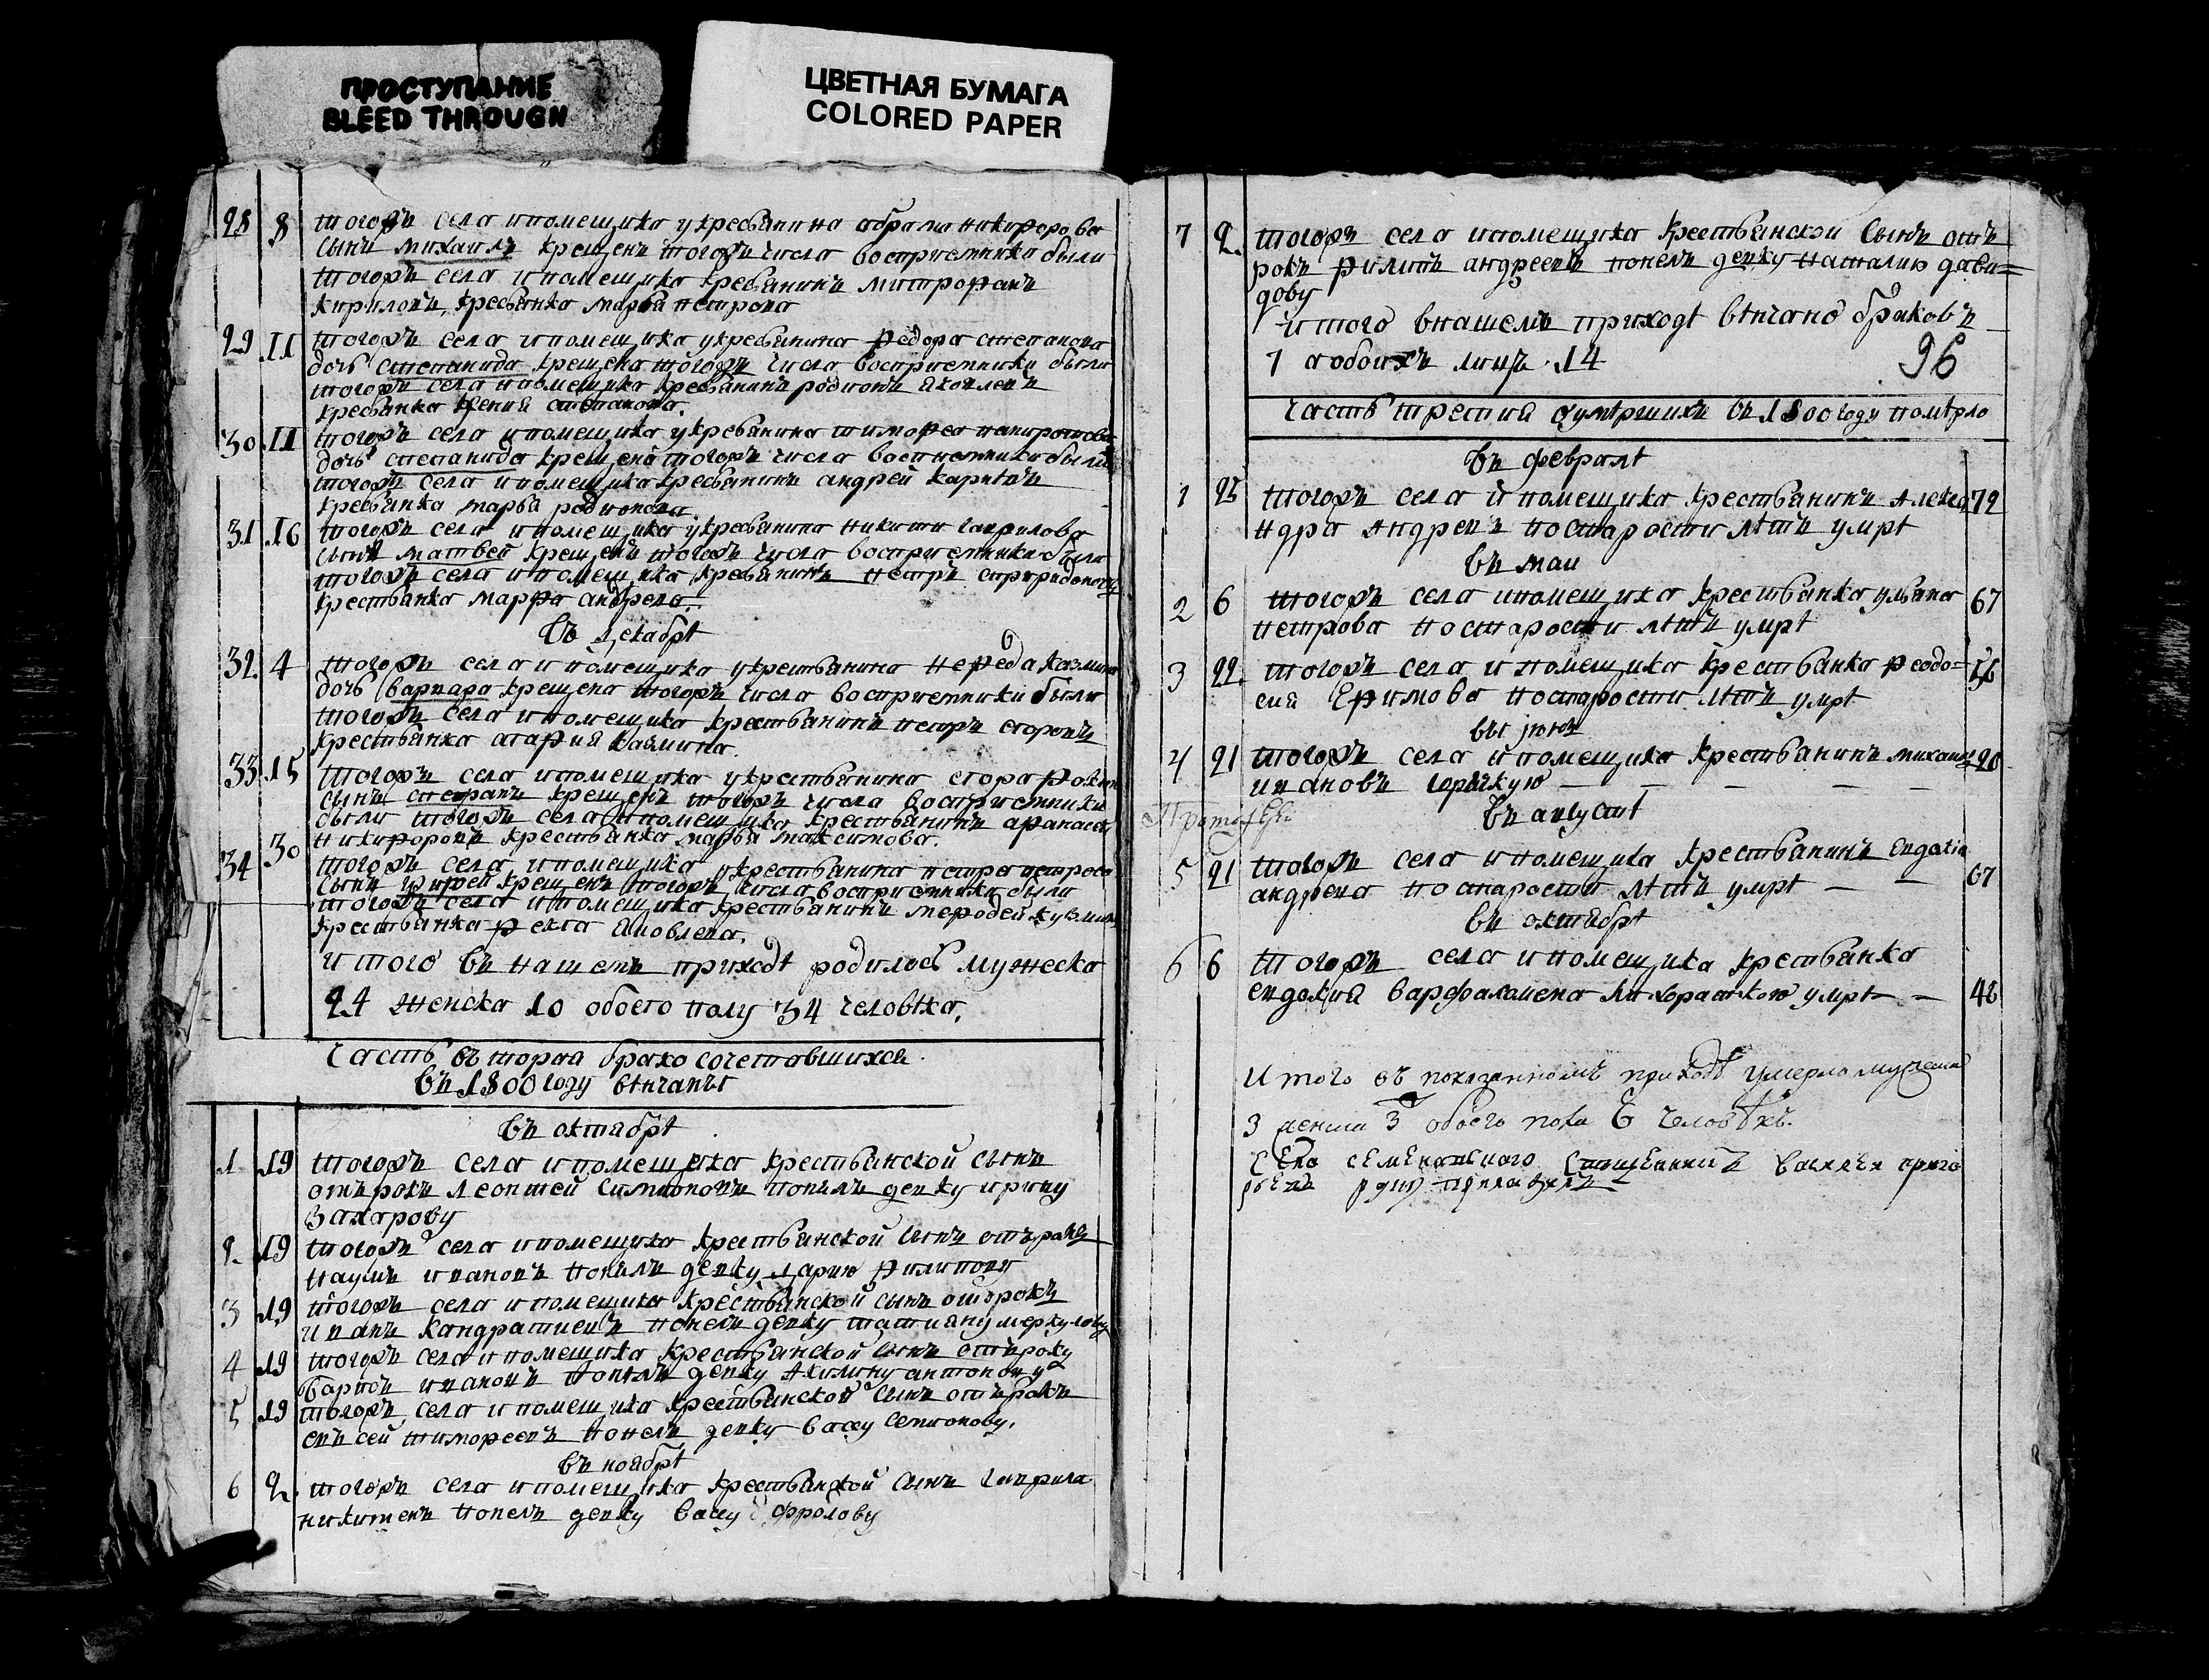 ПРОСТУПАНИЕ
BLEED THROUGH
ЦВЕТНАЯ БУМАГА
COLORED PAPER
28 8 тогожъ села ипомещика укресьянина абрама никифорова
сынъ михаилъ крещенъ тогожъ числа восприемники были
тогожъ села ипомещика кресьянинъ митрофанъ
кириловъ, кресьянка марья петрова
29 11 тогожъ села ипомещика укресьянина федора степанова
дочь степанида крещена тогожъ числа восприемники были
тогожъ села ипомещика кресьянинъ родионъ яковлевъ
кресьянка степанова.
30 11 тогожъ села ипомещика укресьянина тимофея
дочь степанида крещена тогожъ числа были
тогожъ села ипомещика кресьянинъ андрей
кресьянка марья родионова
31 16 тогожъ села ипомещика укресьянина никиты гаврилова
сынъ матвей крещенъ тогожъ числа восприемники были
тогожъ села ипомещика кресьянинъ петръ спиридоновъ
крестьянка марфа андрева.
въ декабрѣ
32 4 тогожъ села ипомещика укрестьянина казмина
дочь варвара крещена тогожъ числа восприемники были
тогожъ села ипомещика крестьянинъ петръ егоровъ
крестьянка агафия казмина.
33 15 тогожъ села ипомещика укрестьянина егора
сынъ стефанъ крещенъ тогожъ числа восприемники
были тогожъ села ипомещика крестьянинъ
никифоровъ крестьянка марья максимова.
34 30 тогожъ села ипомещика укрестьянина петра петрова
сынъ крещенъ тогожъ числа восприемники были
тогожъ села ипомещика крестьянинъ мефодей кузминъ
крестьянка фекла яковлева.
итого въ нашемъ приходѣ родилось мужеска
24 женска 10 обоего полу 34 человѣка.
часть вторая бракосочетавшихся
въ 1800 году
въ октябрѣ
1 19 тогожъ села ипомещика крестьянской сынъ
отърокъ леонтей симионовъ понелъ девку ирину
захарову
2 19 тогожъ села ипомещика крестьянской сынъ отърокъ
наумъ ивановъ понялъ девку дарию филипову
3 19 тогожъ села ипомещика крестьянской сынъ отърокъ
иванъ кандратиевъ понелъ девку татиану меркулову
4 19 тогожъ села ипомещика крестьянской сынъ отърокъ
барисъ ивановъ понелъ девку акилину антонову
5 19 тогожъ села ипомещика крестьянской сынъ отърокъ
евъсей тимофеевъ понелъ девку васу семионову.
въ ноябрѣ
6 2 тогожъ села ипомещика крестьянской сынъ гаврила
никитевъ понелъ девку васу фролову
7 2 тогожъ села ипомещика крестьянской сынъ отъ
рокъ филипъ андреевъ понелъ девку наталию дави=
дову
итого внашемъ приходѣ вѣнчано браковъ
7 аобоихъ лицъ 14
96
часть третия оумѣршихъ въ 1800 году помѣрло
въ февралѣ
1 тогожъ села ипомещика крестьянинъ алекса 72
ндра андревъ постарости лѣтъ умрѣ
въ маи
2 6 тогожъ села ипомещика крестьянка ульяна 67
петрова постарости лѣтъ умрѣ
3 22 тогожъ села ипомещика крестьянка феодо=
сия Ефимова постарости лѣтъ умрѣ
4 21 тогожъ села ипомещика крестьянинъ михаила
ивановъ горячкую
въ августѣ
5 21 тогожъ села ипомещика крестьянинъ 67
андрева постарости лѣтъ умрѣ
въ октябрѣ
6 6 тогожъ села ипомещика крестьянка
евдокия варфаламева умрѣ 48
Итого въ показанномъ приходѣ умерло мужеска
3 женска 3 обоего пола 6 человѣкъ.
священникъ василеи григо
рьевъ руку приложилъ